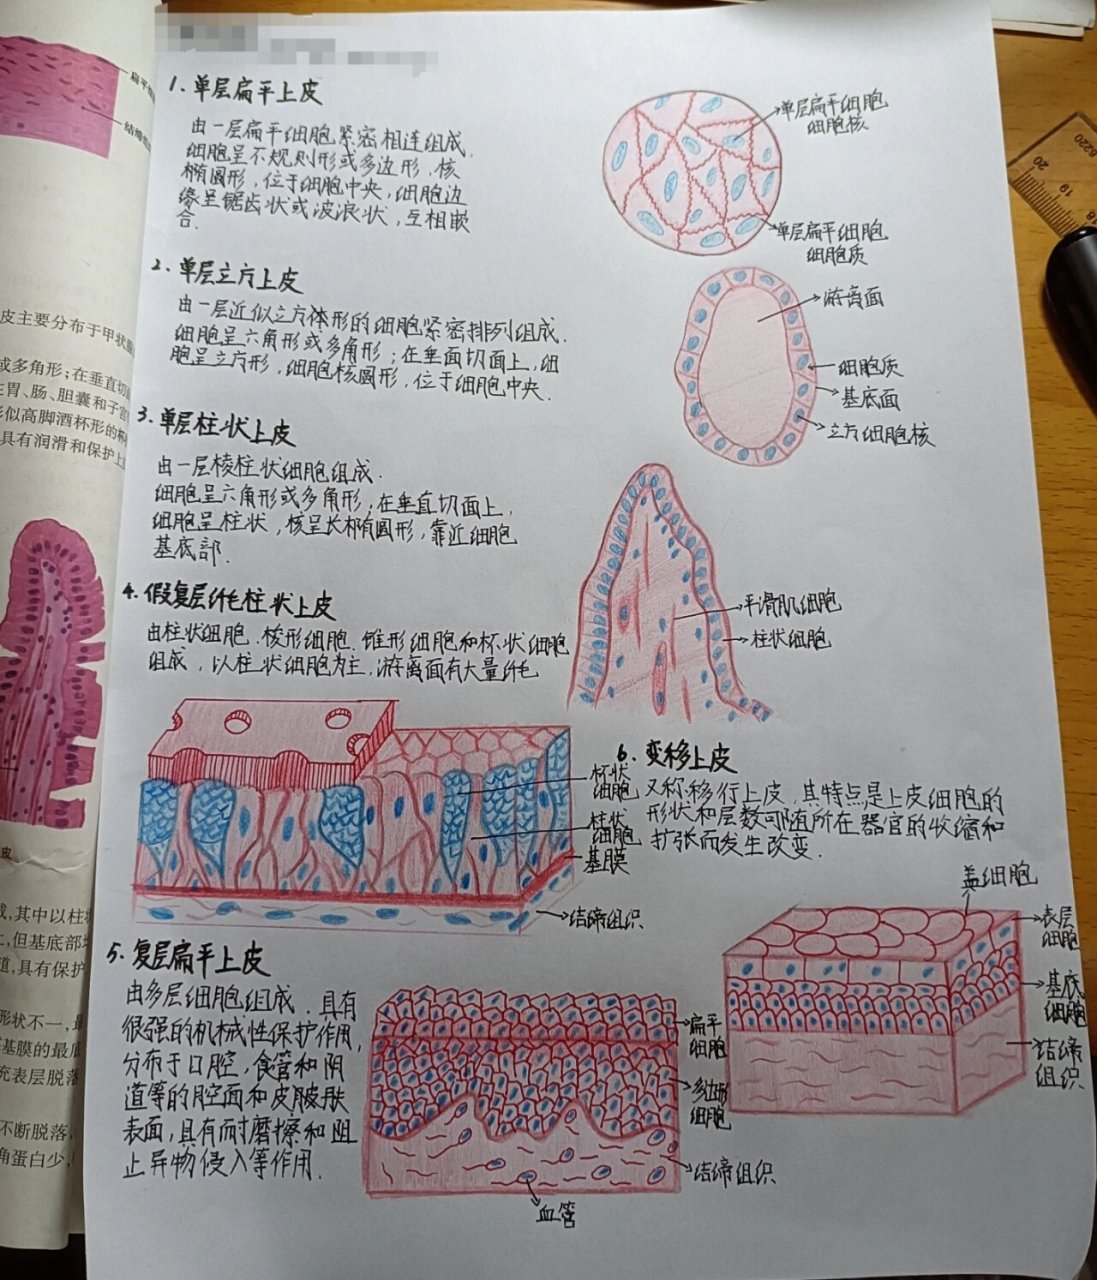 1. 单层扁平上皮
由一层扁平细胞紧密相连组成.
细胞呈不规则形或多边形,核
椭圆形,位于细胞中央,细胞边
缘呈锯齿状或波浪状,互相嵌
合.
单层扁平细胞
细胞核
单层扁平细胞
细胞质
2. 单层立方上皮
由一层近似立方体形的细胞紧密排列组成.
细胞呈六角形或多角形;在垂面切面上,细
胞呈立方形,细胞核圆形,位于细胞中央.
游离面
细胞质
基底面
立方细胞核
3. 单层柱状上皮
由一层棱柱状细胞组成.
细胞呈六角形或多角形,在垂直切面上,
细胞呈柱状,核呈长椭圆形,靠近细胞
基底部.
平滑肌细胞
柱状细胞
4. 假复层纤毛柱状上皮
由柱状细胞.梭形细胞.锥形细胞和杯状细胞
组成,以柱状细胞为主,游离面有大量纤毛
杯状
细胞
柱状
细胞
基膜
结缔组织
5. 复层扁平上皮
由多层细胞组成.具有
很强的机械性保护作用,
分布于口腔,食管和阴
道等的腔面和皮肤
表面,具有耐磨擦和阻
止异物侵入等作用.
扁平
细胞
多边形
细胞
结缔组织
血管
6. 变移上皮
又称移行上皮,其特点是上皮细胞的
形状和层数可随所在器官的收缩和
扩张而发生改变.
盖细胞
表层
细胞
基底
细胞
结缔
组织
扁平细
结缔组
皮主要分布于甲状
或多角形;在垂直切
胃、肠、胆囊和子宫
似高脚酒杯形的杯
具有润滑和保护上
皮
成,其中以柱
但基底部
道,具有保护
形状不一,
基膜的最底
充表层脱落
不断脱落,
角蛋白少,
20
19
18
6220